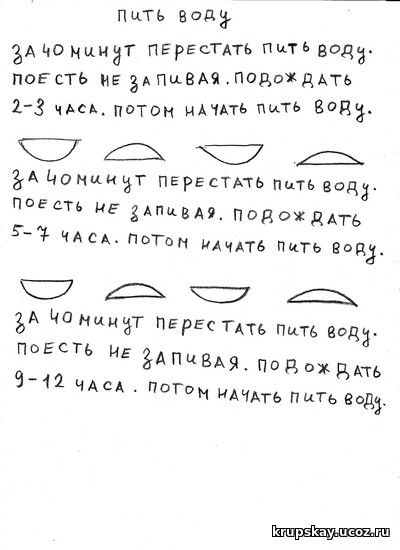 пить воду
за 40 минут перестать пить воду.
поесть не запивая. подождать
2-3 часа. потом начать пить воду.
за 40 минут перестать пить воду.
поесть не запивая. подождать
5-7 часа. потом начать пить воду.
за 40 минут перестать пить воду.
поесть не запивая. подождать
9-12 часа. потом начать пить воду.
krupskay.ucoz.ru